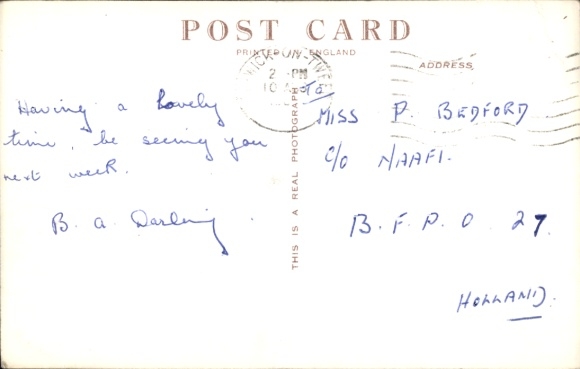 POST CARD
PRINTED IN ENGLAND
ADDRESS
2 - PM
Having a lovely
time, be seeing you
next week.
B. a. Darling
THIS IS A REAL PHOTOGRAPH
To
MISS P. BEDFORD
C/O NAAFI.
B. F. P. O. 27.
HOLLAND.